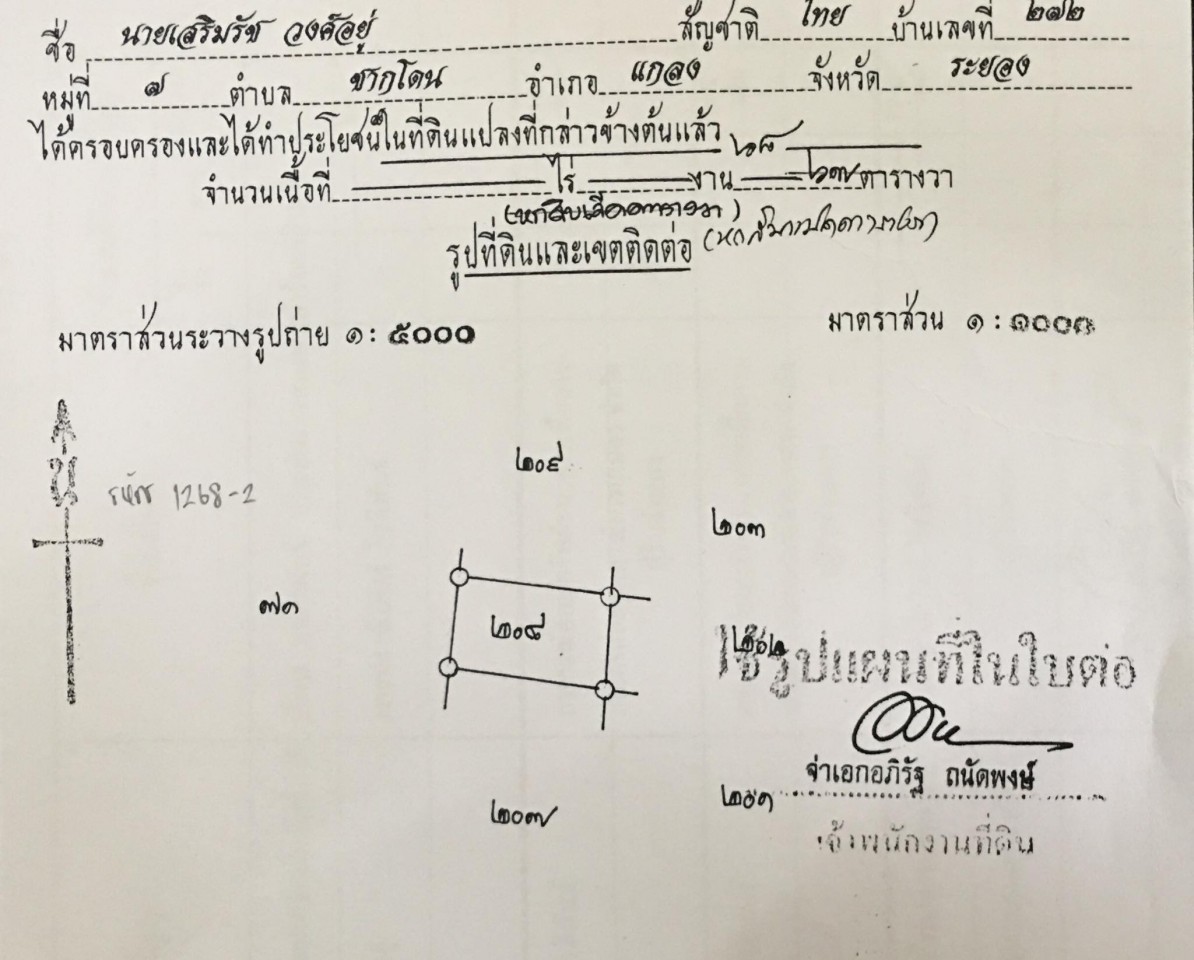 ชื่อ นายเสริมรัช วงศ์อยู่ สัญชาติ ไทย บ้านเลขที่ ๒๗๒
หมู่ที่ ๗ ตำบล ชากโดน อำเภอ แกลง จังหวัด ระยอง
ได้ครอบครองและได้ทำประโยชน์ในที่ดินแปลงที่กล่าวข้างต้นแล้ว ๖๘
จำนวนเนื้อที่ ไร่ งาน ตารางวา
รูปที่ดินและเขตติดต่อ
มาตราส่วนระวางรูปถ่าย ๑ : ๕๐๐๐ มาตราส่วน ๑ : ๑๐๐๐
๒๐๙
น รหัส 1268-2
๒๐๓
๗๑ ๒๐๘
ใช้รูปแผนที่ในใบต่อ
จ่าเอกอภิรัฐ ถนัดพงษ์
๒๐๗
เจ้าพนักงานที่ดิน